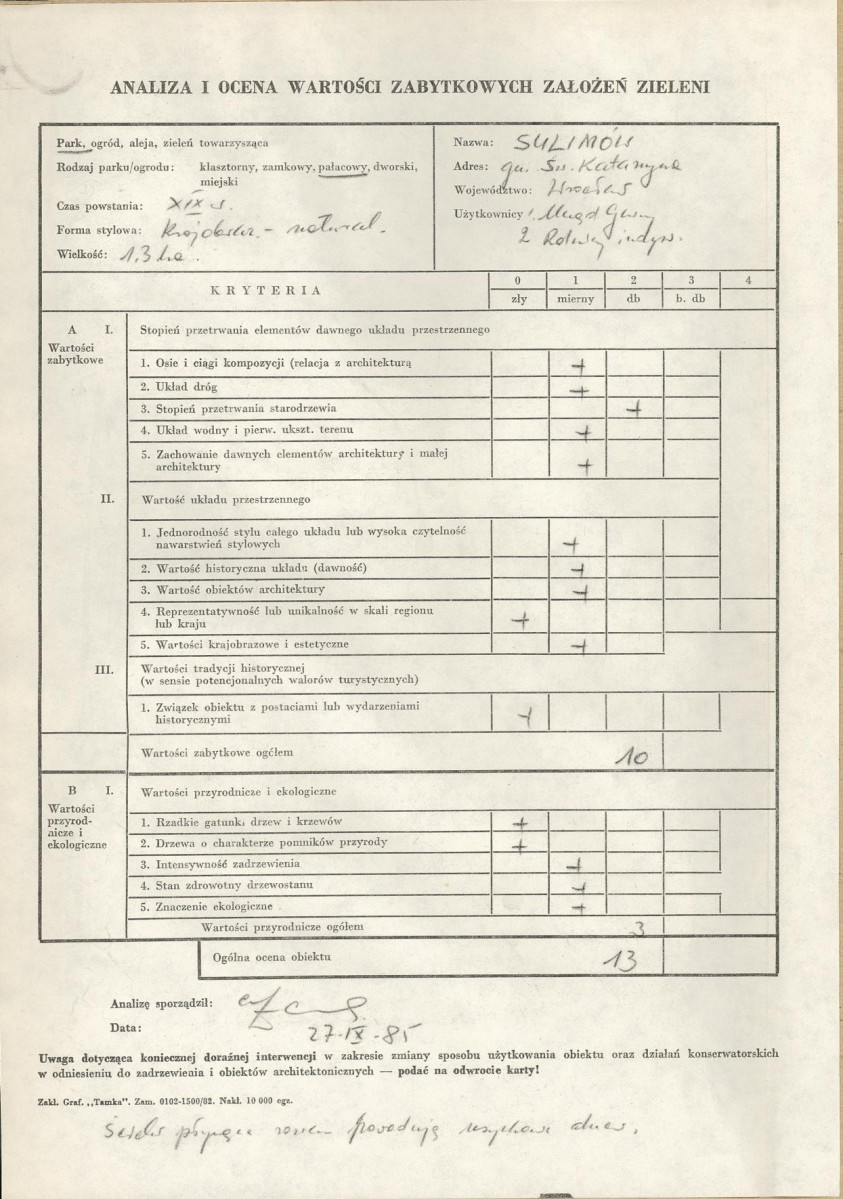 ANALIZA I OCENA WARTOŚCI ZABYTKOWYCH ZAŁOŻEŃ ZIELENI
Park, ogród, aleja, zieleń towarzysząca
Rodzaj parku/ogrodu: klasztorny, zamkowy, pałacowy, dworski,
miejski
Czas powstania: XIX w.
Forma stylowa: Krajobraz. - natural.
Wielkość: 1,3 ha.
Nazwa: SULIMÓW
Adres: gm. Św. Katarzyna
Województwo: Wrocław
Użytkownicy 1. Urząd Gminy
2 Rolnicy indyw.
KRYTERIA
0 1 2 3 4
zły mierny db b. db
A I. Stopień przetrwania elementów dawnego układu przestrzennego
Wartości
zabytkowe
1. Osie i ciągi kompozycji (relacja z architekturą +
2. Układ dróg +
3. Stopień przetrwania starodrzewia +
4. Układ wodny i pierw. ukszt. terenu +
5. Zachowanie dawnych elementów architektury i małej
architektury +
II. Wartość układu przestrzennego
1. Jednorodność stylu całego układu lub wysoka czytelność
nawarstwień stylowych +
2. Wartość historyczna układu (dawność) +
3. Wartość obiektów architektury +
4. Reprezentatywność lub unikalność w skali regionu
lub kraju +
5. Wartości krajobrazowe i estetyczne +
III. Wartości tradycji historycznej
(w sensie potencjonalnych walorów turystycznych)
1. Związek obiektu z postaciami lub wydarzeniami
historycznymi +
Wartości zabytkowe ogółem 10
B I. Wartości przyrodnicze i ekologiczne
Wartości
przyrod-
nicze i
ekologiczne
1. Rzadkie gatunki drzew i krzewów +
2. Drzewa o charakterze pomników przyrody +
3. Intensywność zadrzewienia +
4. Stan zdrowotny drzewostanu +
5. Znaczenie ekologiczne +
Wartości przyrodnicze ogółem 3
Ogólna ocena obiektu 13
Analizę sporządził:
Data: 27-IX-85
Uwaga dotycząca koniecznej doraźnej interwencji w zakresie zmiany sposobu użytkowania obiektu oraz działań konserwatorskich
w odniesieniu do zadrzewienia i obiektów architektonicznych — podać na odwrocie karty!
Zakł. Graf. „Tamka". Zam. 0102-1500/82. Nakł. 10 000 egz.
Ścieki płynące rowem powodują usychanie drzew.